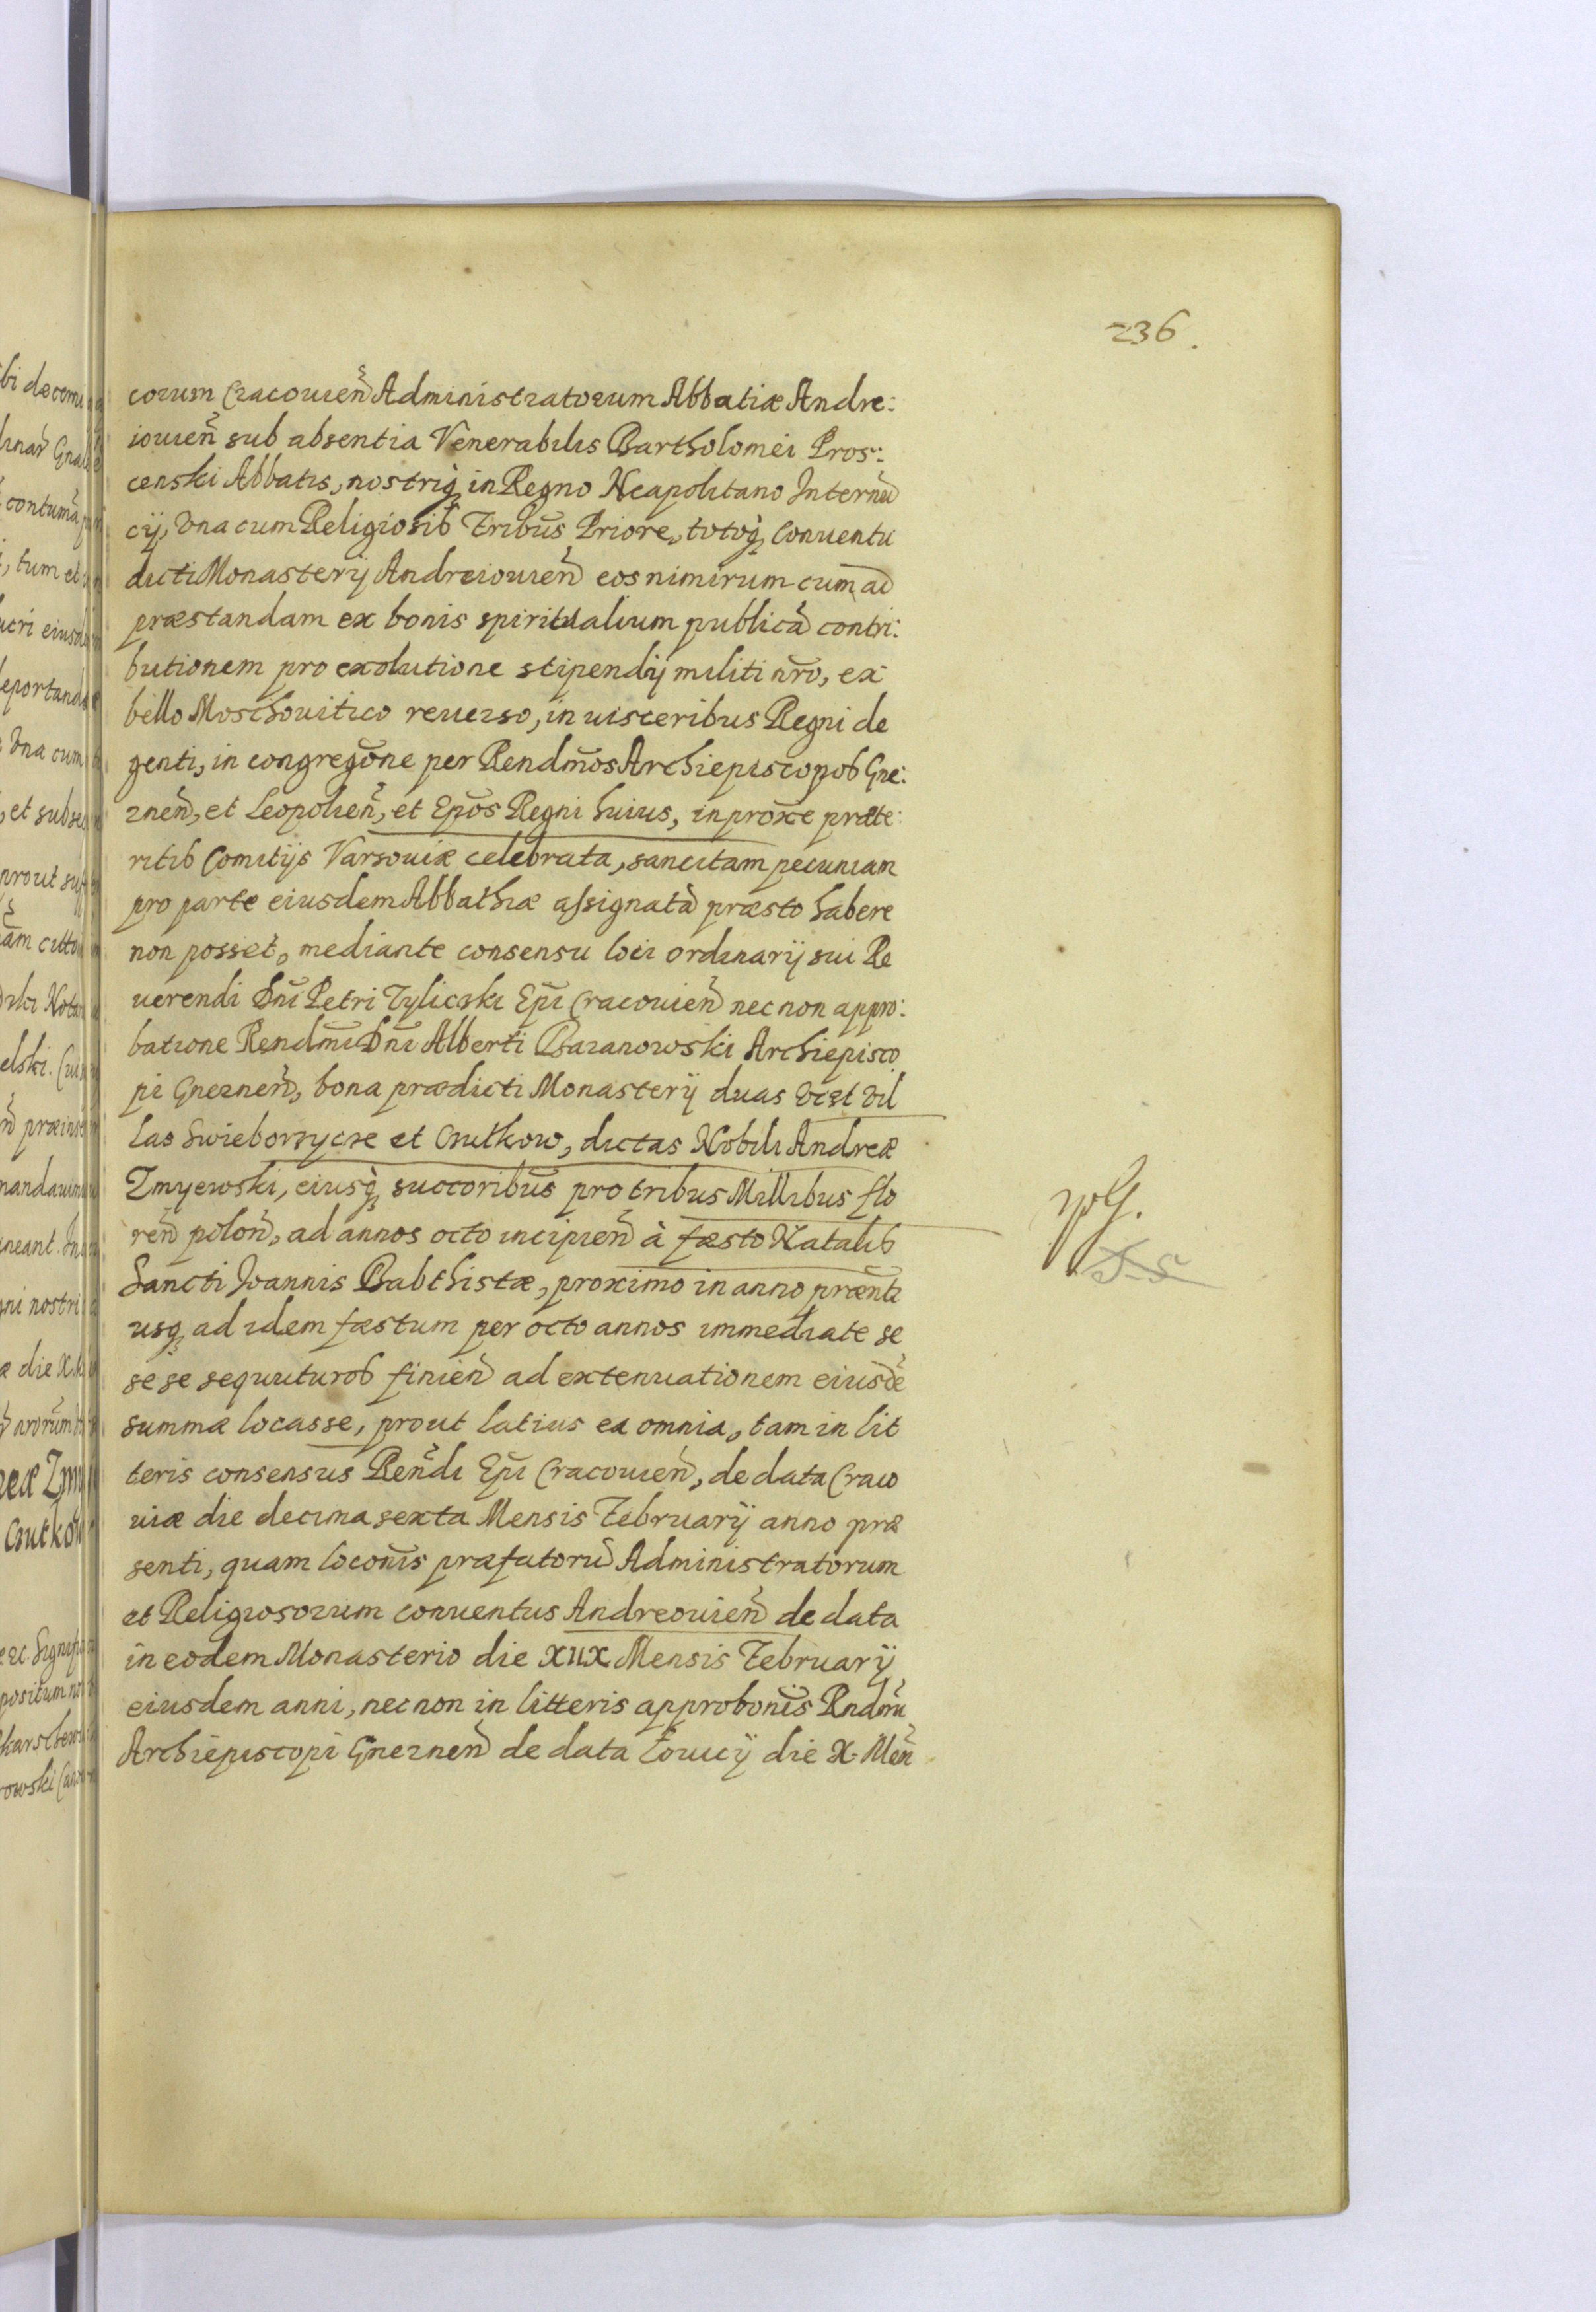 236.
corum Cracouien̄ Administratorum Abbatiæ Andre:
iouien̄ sub absentia Venerabilis Bartholomei Pros:
censki Abbatis, nostriq̨ in Regno Neapolitano Internū
cÿ, Vna cum Religiosis Tribūs Priore, totoq̨ Conuentu
dicti Monasterÿ Andreiouien̄ eos nimirum cum ad
præstandam ex bonis spiritualium publicā contri:
butionem pro exolutione stipendÿ militi n̄ro, ex
bello Moschouitico reuerso, in uisceribus Regni de
genti, in congregōne per Rendm̄os Archiepiscopos Gne:
znen̄, et Leopolien̄, et Ep̄os Regni huius, in prox̄e præte:
ritis Comitÿs Varsouiæ celebrata, sancitam pecuniam
pro parte eiusdem Abbathiæ assignatā præsto habere
non posset, mediante consensu loci ordinarÿ sui Re
uerendi Dn̄i Petri Tylicski Ep̄i Cracouien̄ nec non appro:
batione Rendm̄i Dn̄i Alberti Baranowski Archiepisco
pi Gneznen̄, bona prædicti Monasterÿ duas vczt Vil
las Swieborzycze et Cnutkow, dictas Nobili Andreæ
Zmyewski, eiusq̨ succoribūs pro tribus Millibus flo
ren̄ polon̄, ad annos octo incipien̄ à fæsto Natalis
Sancti Joannis Babthistæ, proximo in anno præn̄ti
usq̨ ad idem fæstum per octo annos immediate se
se se sequuturos finien̄ ad extenuationem eiusdē
summæ locasse, prout latius ea omnia, tam in lit
teris consensus Ren̄di Ep̄i Cracouien̄, de data Craco
uiæ die decima sexta Mensis Februarÿ anno præ
senti, quam locōnis præfatorū Administratorum
et Religiosorum conuentus Andreouien̄ de data
in eodem Monasterio die XIIX Mensis Februarÿ
eiusdem anni, nec non in litteris approbōnis Rndm̄i
Archiepiscopi Gneznen̄ de data Louicÿ die X. Men̄